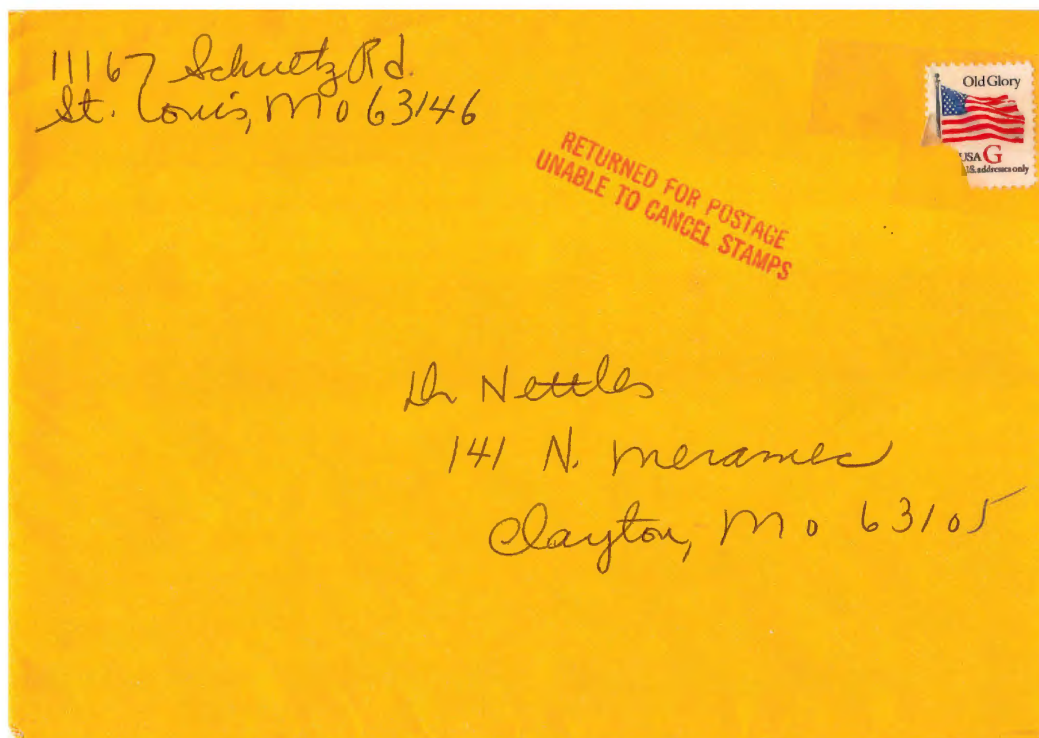 11167 Schuetz Rd.
St. Louis, Mo 63146
Old Glory
USA G
U.S. addresses only
RETURNED FOR POSTAGE
UNABLE TO CANCEL STAMPS
Dr Nettles
141 N. Meramec
Clayton, Mo 63105